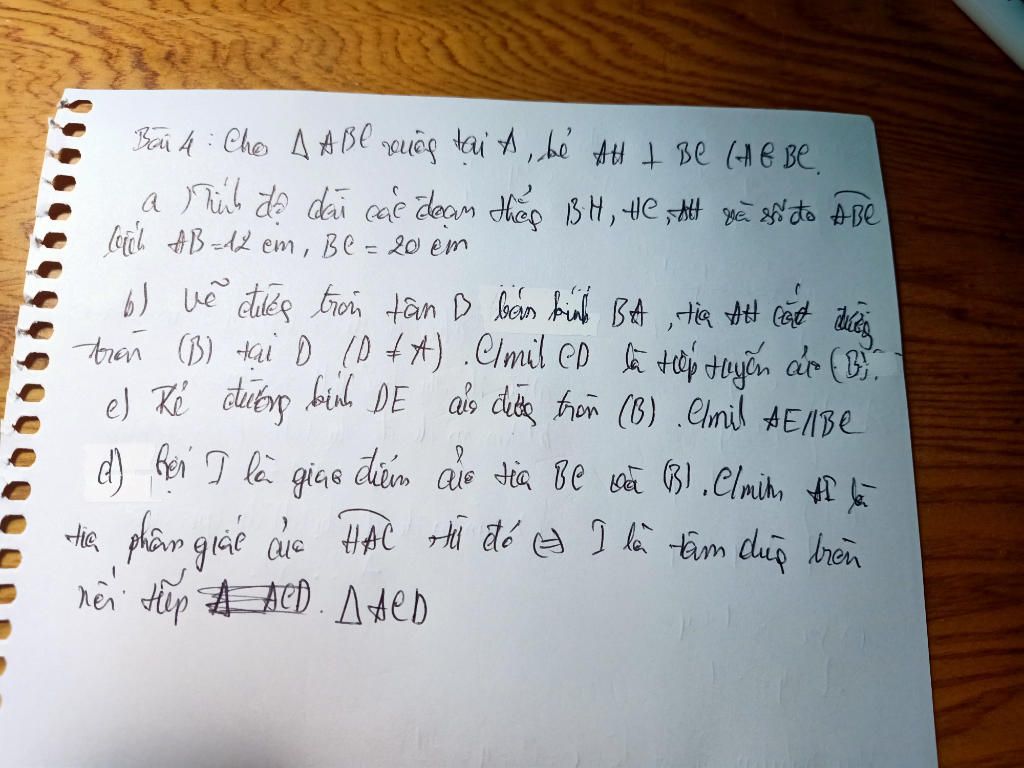 Bài 4 : Cho Δ ABC vuông tại A, kẻ AH ⊥ BC (A ∈ BC.
a) Tính độ dài các đoạn thẳng BH, HC, AH và số đo ABC
biết AB = 12 cm, BC = 20 cm
b) Vẽ đường tròn tâm D bán kính BA, tia AH cắt đường
tròn (B) tại D (D ≠ A). C/mih CD là tiếp tuyến của (B).
c) Kẻ đường kính DE của đường tròn (B). C/mih AE//BC
d) Gọi I là giao điểm của tia BC và (B). C/mih AI là
tia phân giác của HAC từ đó ⇒ I là tâm đường tròn
nội tiếp Δ ACD. Δ ACD